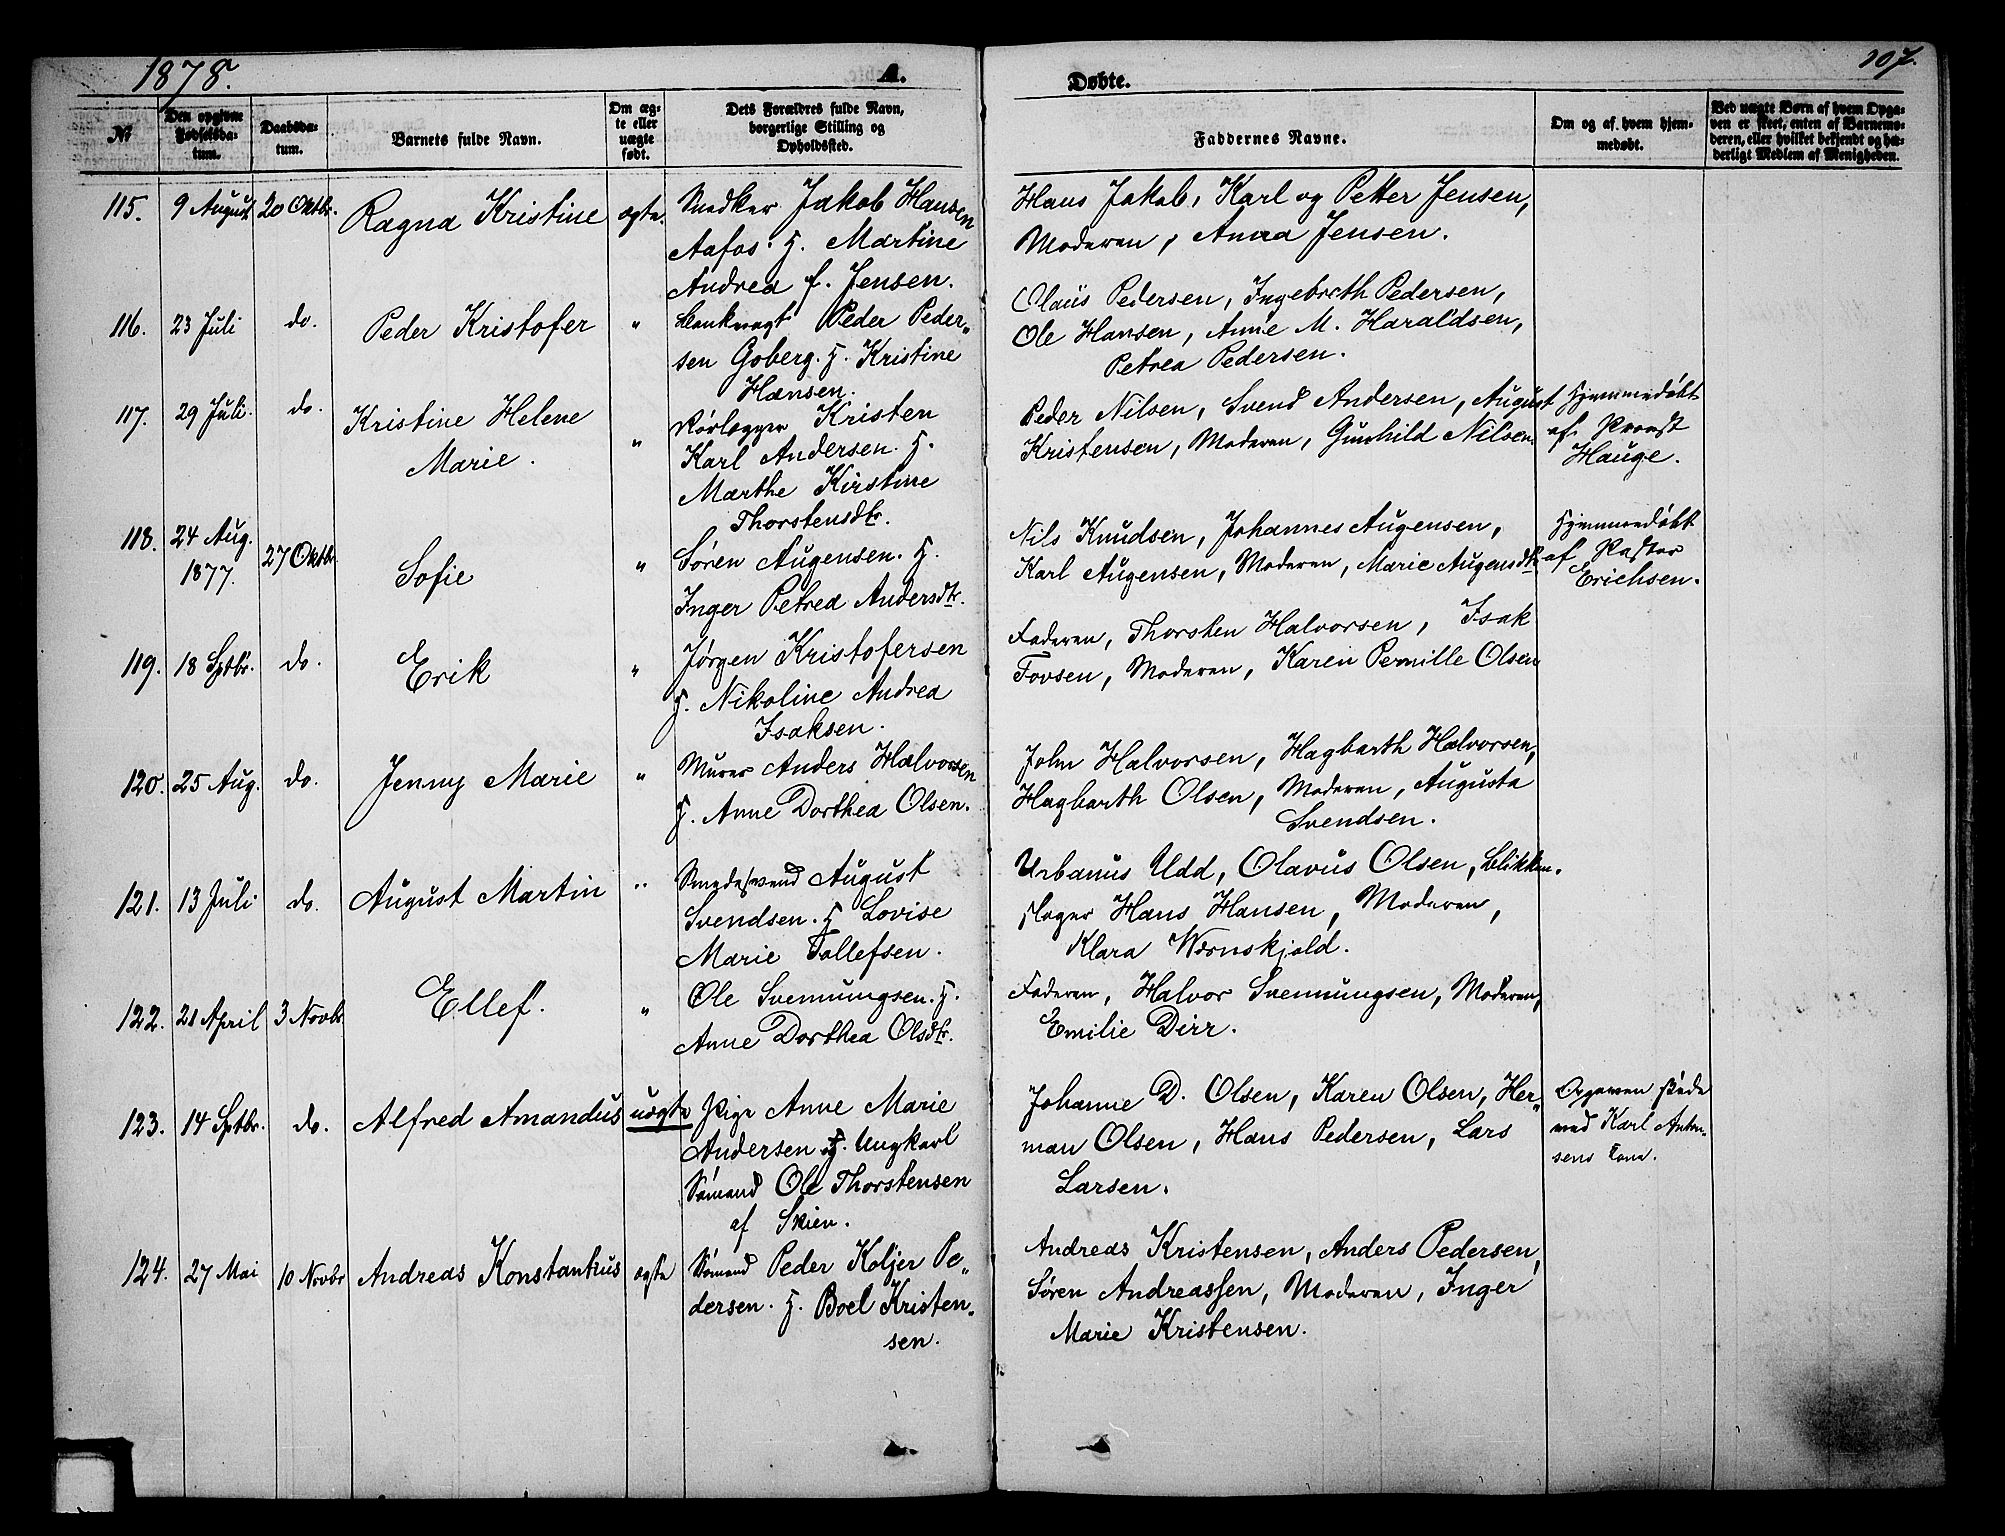 1878.
A.
Døbte.
107.
№
Den opgivne Fødselsdatum.
Daabsdatum.
Barnets fulde Navn.
Om ægte eller uægte født.
Dets Forældres fulde Navn, borgerlige Stilling og Opholdssted.
Faddernes Navne.
Om og af hvem hjemmedøbt.
Ved uægte Børn af hvem Opgaven er skeet, enten af Barnemoderen, eller hvilket bekjendt og hæderligt Medlem af Menigheden.
115. 9 August 20 Oktbr. Ragna Kristine ægte.
Jakob Hansen
Aafos. H. Martine
Andrea f. Jensen.
Hans Jakob, Karl og Petter Jensen,
Moderen, Anna Jensen.
116. 23 Juli do. Peder Kristofer "
Peder Peder„
sen Goberg. H. Kristine
Hansen.
Olaus Pedersen, Ingeborth Pedersen,
Ole Hansen, Anne M. Haraldsen,
Petrea Pedersen.
117. 29 Juli. do. Kristine Helene
Marie. "
Rørlægger Kristen
Karl Andersen. H.
Marthe Kirstine
Thorstensdtr.
Peder Nilsen, Svend Andersen, August
Kristensen, Moderen, Gunhild Nilsen
Hjemmedøbt
af Provst
Hauge.
118. 24 Aug.
1877. 27 Oktbr. Sofie "
Søren Augensen. H.
Inger Petrea Andersdtr.
Nils Knudsen, Johannes Augensen,
Karl Augensen, Moderen, Marie Augensdtr
Hjemmedøbt
af Pastor
Erichsen.
119. 18 Sptbr. do. Erik "
Jørgen Kristofersen
H. Nikoline Andrea
Isaksen.
Faderen, Thorsten Halvorsen, Isak
Tovsen, Moderen, Karen Pernille Olsen
120. 25 Aug. do. Jenny Marie "
Murer Anders Halvorsen
H. Anne Dorthea Olsen.
John Halvorsen, Hagbarth Halvorsen,
Hagbarth Olsen, Moderen, Augusta
Svendsen.
121. 13 Juli do. August Martin "
Smedesvend August
Svendsen. H Lovise
Marie Tollefsen.
Urbanus Udd, Olavus Olsen, Blikken-
slager Hans Hansen, Moderen,
Klara Wernskjold.
122. 21 April 3 Novbr Ellef. "
Ole Svennungsen. H.
Anne Dorthea Olsdtr.
Faderen, Halvor Svennungsen, Moderen,
Emilie Dirr.
123. 14 Sptbr. do. Alfred Amandus uægte
Pige Anne Marie
Andersen og Ungkarl
Sømand Ole Thorstensen
af Skien.
Johanne D. Olsen, Karen Olsen, Her-
man Olsen, Hans Pedersen, Lars
Larsen.
Opgaven skede
ved Karl Anton-
sens Kone.
124. 27 Mai 10 Novbr Andreas Konstantius ægte
Sømand Peder Keljer Pe„
dersen. H. Boel Kristen„
sen.
Andreas Kristensen, Anders Pedersen,
Søren Andreassen, Moderen, Inger
Marie Kristensen.